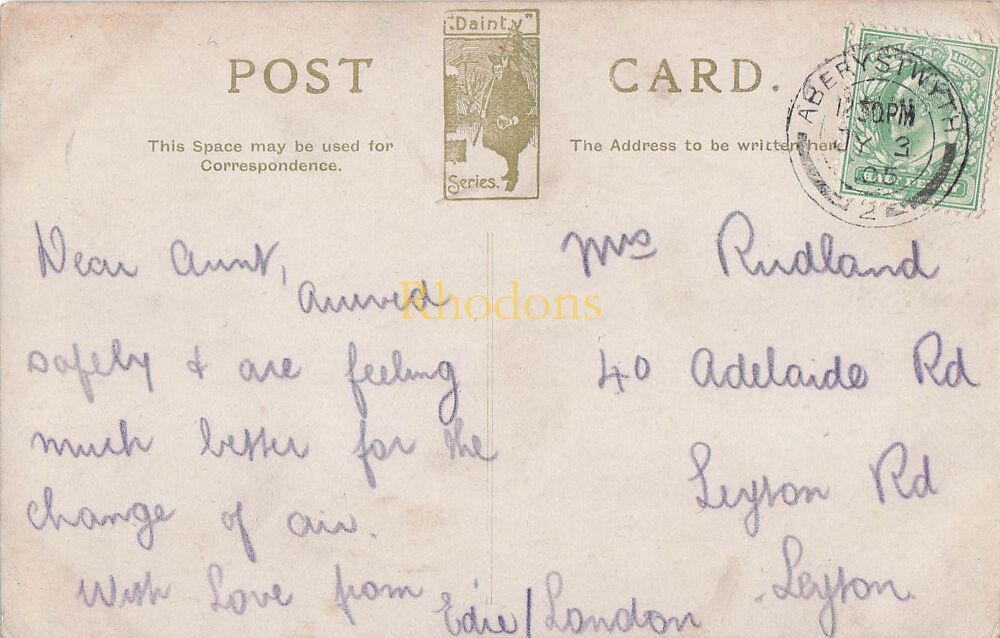 POST CARD.
"Dainty"
Series.
This Space may be used for
Correspondence.
The Address to be written here
ABERYSTWYTH
30PM
3
05
2
HALF PENNY
Dear Aunt,
Arrived
safely & are feeling
much better for the
change of air.
With Love from
Edie/London
Mrs Rudland
40 Adelaide Rd
Leyton Rd
Leyton.
Rhodons